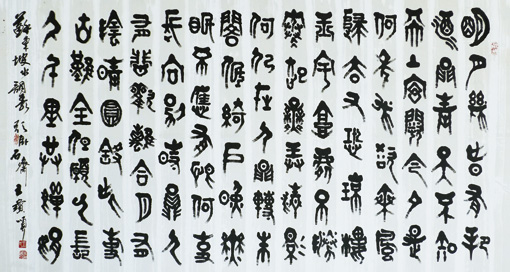 明月幾時有把
酒問青天不知
天上宮闕今夕是
何年我欲乘風
歸去又恐瓊樓
玉宇高處不勝
寒起舞弄清影
何似在人間轉朱
閣低綺戶照無
眠不應有恨何事
長向別時圓人
有悲歡離合月有
陰晴圓缺此事
古難全但願人長
久千里共嬋娟
蘇東坡水調歌頭